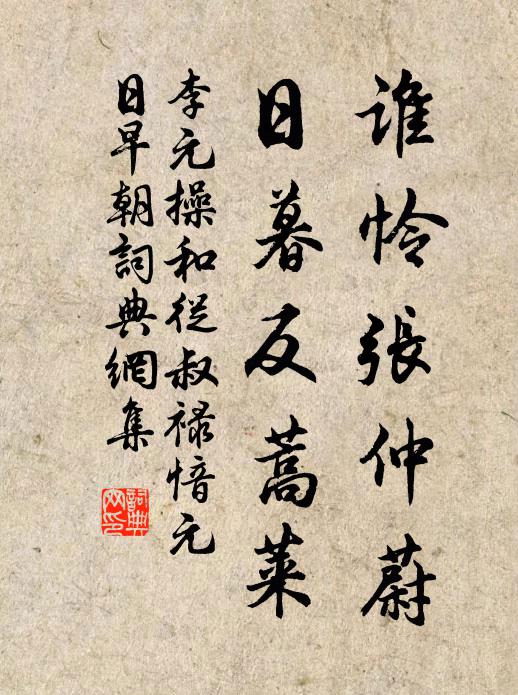 誰怜張仲蔚
日暮反蒿萊
李元操和從叔祿愔元
日早朝詞典網集
詞典网印